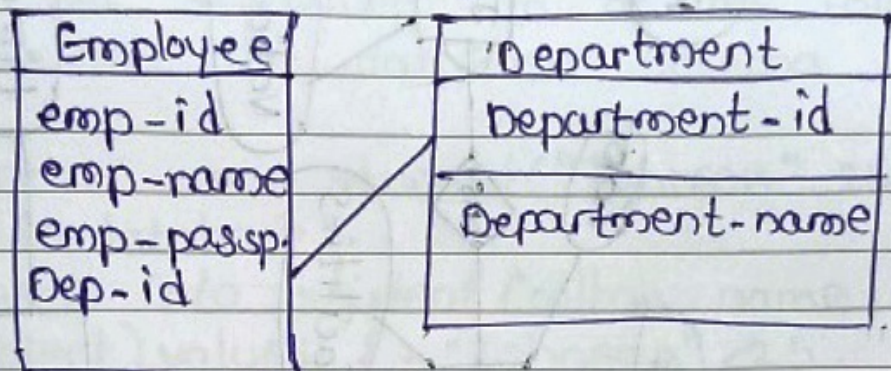 Employee
emp-id
emp-name
emp-passp.
Dep-id
Department
Department-id
Department-name